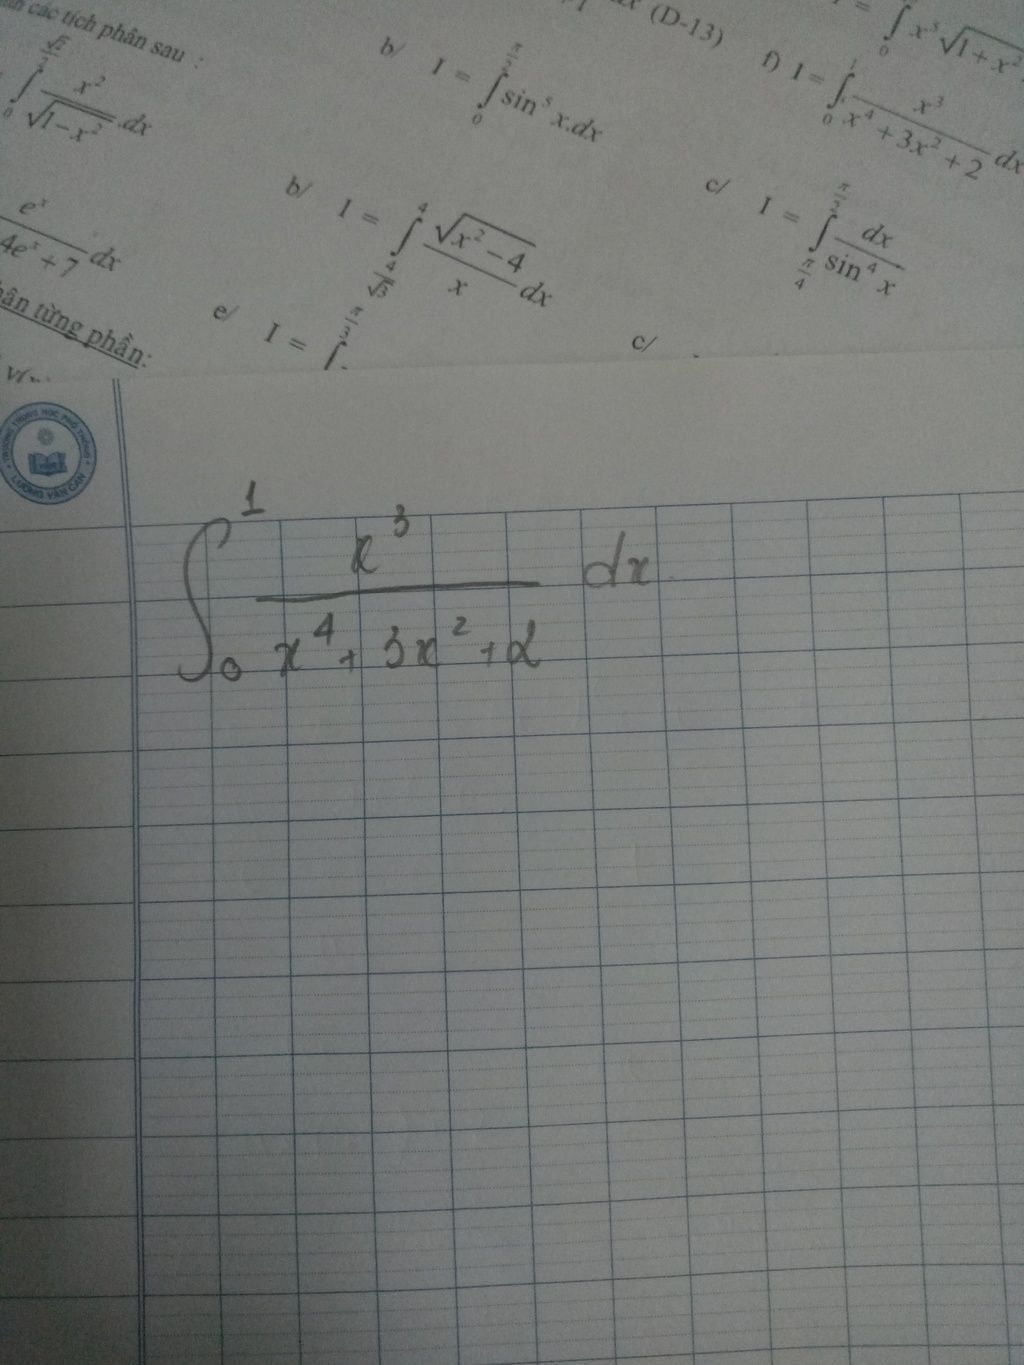 các tích phân sau :
∫₀^(√2/2) x²/√(1-x²) .dx
b/ I = ∫₀^(π/2) sin⁵ x.dx
(D-13)
∫₀ x⁵√(1+x²)
f) I = ∫₀¹ x³/(x⁴+3x²+2) dx
eˣ/(4eˣ+7) dx
b/ I = ∫_(4/√3)^4 √(x²-4)/x dx
c/ I = ∫_(π/4)^(π/2) dx/sin⁴ x
từng phần:
e/ I = ∫^(π/3)
c/
TRƯỜNG TRUNG HỌC PHỔ THÔNG
LƯƠNG VĂN CAN
∫₀¹ x³/(x⁴+3x²+2) dx